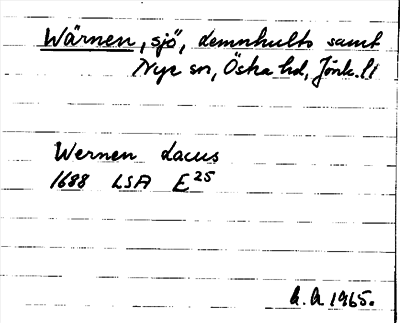 Wärnen, sjö, Lemnhults samt
Nye sn, Östra hd, Jönk. ll
Wernen Lacus
1688 LSA E25
A. A 1965.